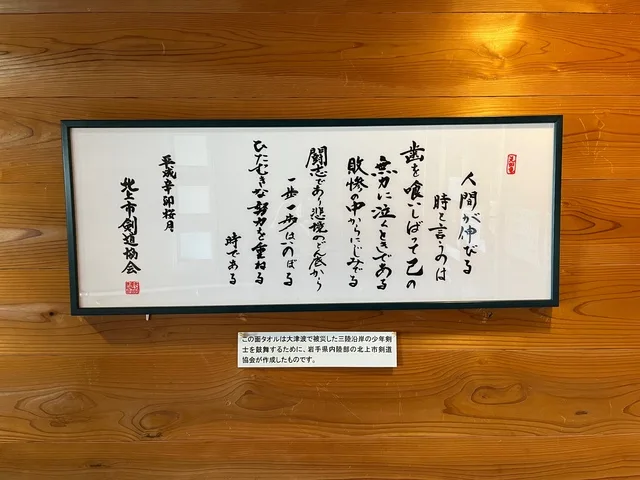 人間が伸びる
時と言うのは
歯を喰いしばって己の
無力に泣くときである
敗惨の中からにじみでる
闘志であり悲境のどん底から
一歩一歩はいのぼる
ひたむきな努力を重ねる
時である
平成辛卯桜月
北上市剣道協会
この面タオルは大津波で被災した三陸沿岸の少年剣
士を鼓舞するために、岩手県内陸部の北上市剣道
協会が作成したものです。